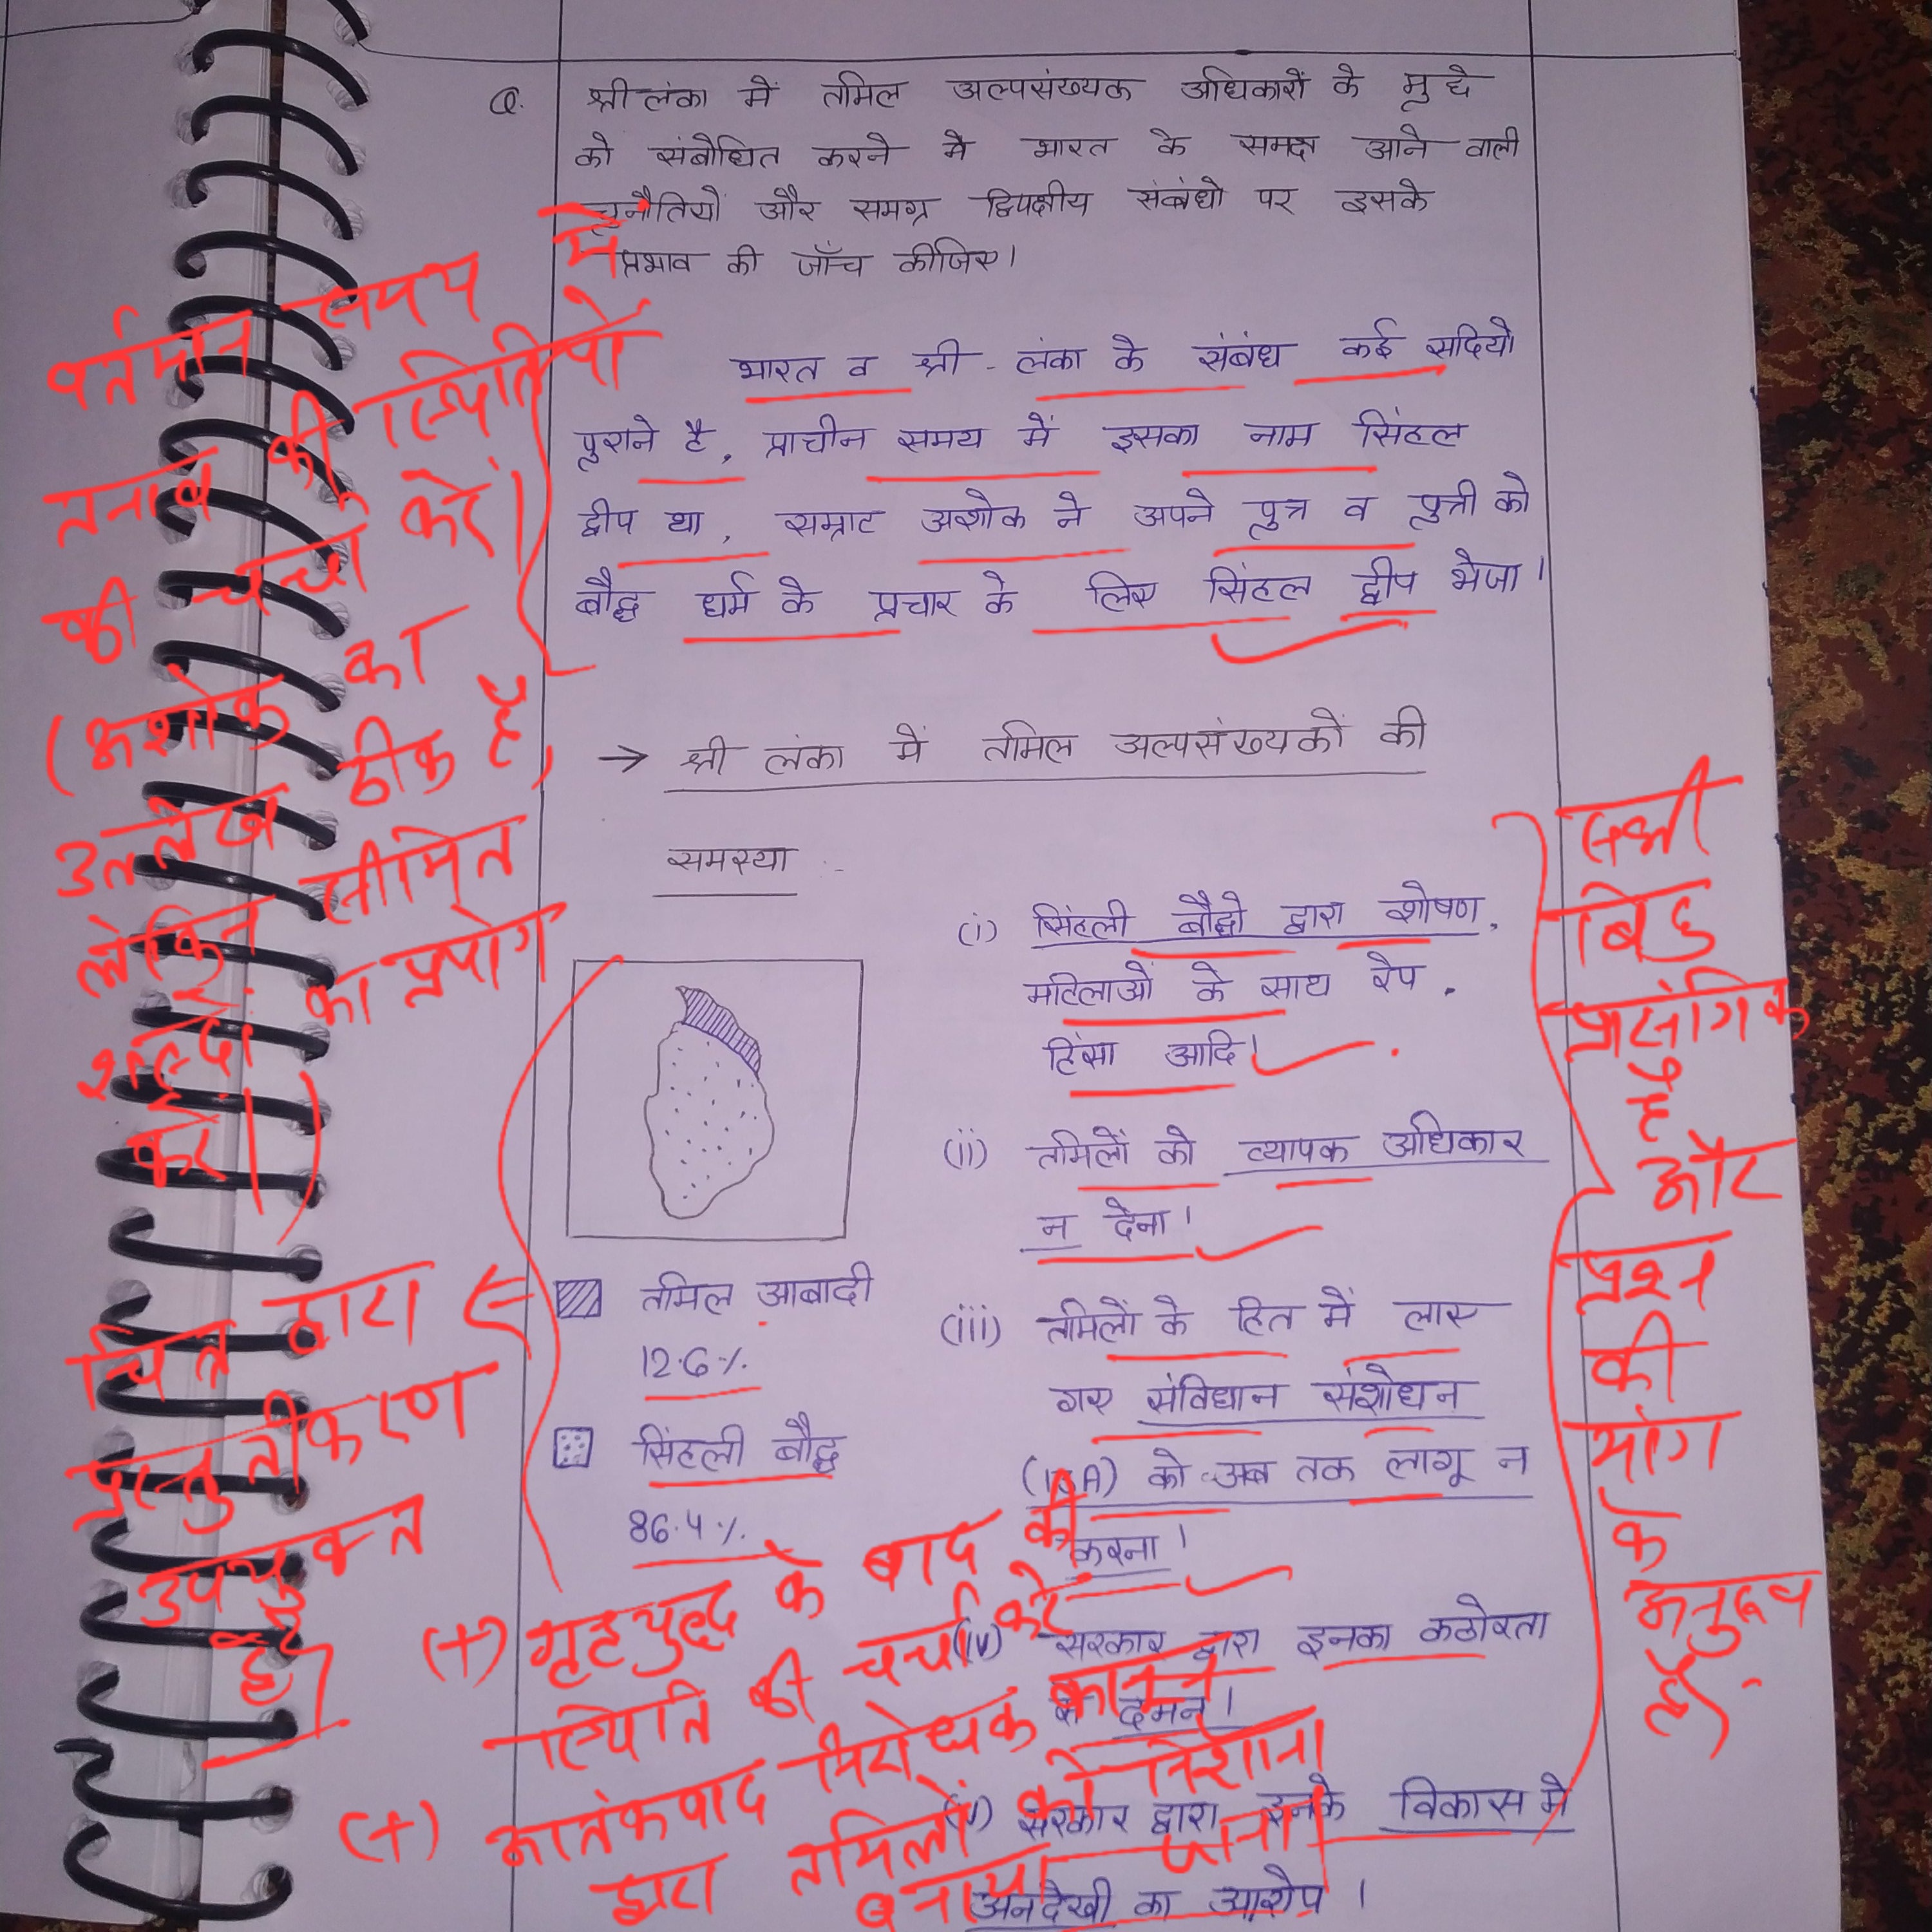 Q. श्री लंका में तमिल अल्पसंख्यक अधिकारों के मुद्दे
को संबोधित करने मे भारत के समक्ष आने वाली
चुनौतियों और समग्र द्विपक्षीय संबंधो पर इसके
प्रभाव की जाँच कीजिए।
वर्तमान समय में
तनाव की स्थितियों
की चर्चा करें।
(अशोक का
उल्लेख ठीक है,
लेकिन सीमित
शब्दों का प्रयोग
करें।)
भारत व श्री - लंका के संबंध कई सदियो
पुराने है, प्राचीन समय में इसका नाम सिंहल
द्वीप था, सम्राट अशोक ने अपने पुत्र व पुत्री को
बौद्ध धर्म के प्रचार के लिए सिंहल द्वीप भेजा।
→ श्री लंका में तमिल अल्पसंख्यकों की
समस्या :-
(i) सिंहली बौद्धो द्वारा शोषण,
महिलाओं के साथ रेप,
हिंसा आदि।
(ii) तमिलों को व्यापक अधिकार
न देना।
(iii) तमिलों के हित में लाए
गए संविधान संशोधन
को अब तक लागू न
करना।
(iv) सरकार द्वारा इनका कठोरता
से दमन।
(v) सरकार द्वारा इनके विकास मे
अनदेखी का आरोप।
तमिल आबादी
12.6%
सिंहली बौद्ध
86.4%
चित्र द्वारा
प्रस्तुतीकरण
उपयुक्त
है।
सभी
बिंदु
प्रासंगिक
है
और
प्रश्न
की
मांग
के
अनुरूप
हैं।
(+) गृहयुद्ध के बाद की
स्थिति की चर्चा करें
(+) आतंकवाद निरोधक कानून
द्वारा तमिलों को निशाना
बनाया जाना।